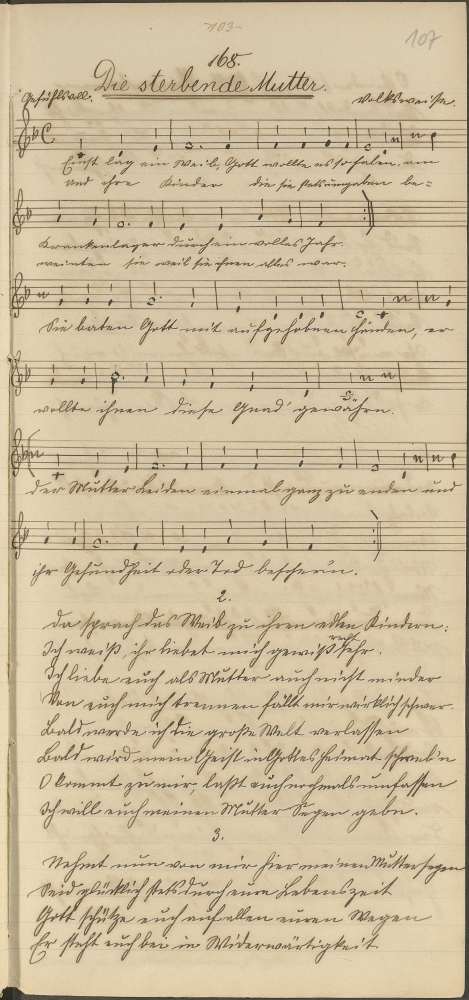 103
107
168.
Die sterbende Mutter.
Gefühlvoll.
Volksweise.
Einst lag ein Weib, Gott wollte es so haben, am
und ihre Kinder die sie stets umgaben be=
Krankenlager durch ein volles Jahr.
weinten sie weil sie ihnen alles war.
Sie baten Gott mit aufgehobnen Händen, er
wollte ihnen diese Gnad' gewährn.
der Mutter Leiden einmal ganz zu enden und
ihr Gesundheit oder Tod bescheer'n.
2.
Da sprach das Weib zu ihren edlen Kindern:
Ich weiß, ihr liebet mich gewiß recht sehr.
Ich liebe euch als Mutter auch nicht minder
Von euch mich trennen fällt mir wirklich schwer.
Bald werde ich die große Welt verlassen
Bald wird mein Geist in Gottes Heimat schweb'n
O kommt zu mir, laßt euch nochmals umfassen
Ich will euch meinen Mutter Segen gebn.
3.
Nehmt nun von mir hier meinen Muttersegen
Seid glücklich stets durch eure Lebenszeit
Gott schütze euch auf allen euren Wegen
Er steht euch bei in Widerwärtigkeit